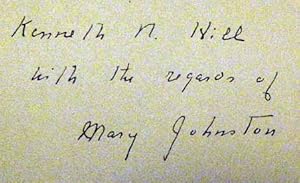 Kenneth N. Hill
with the regards of
Mary Johnston